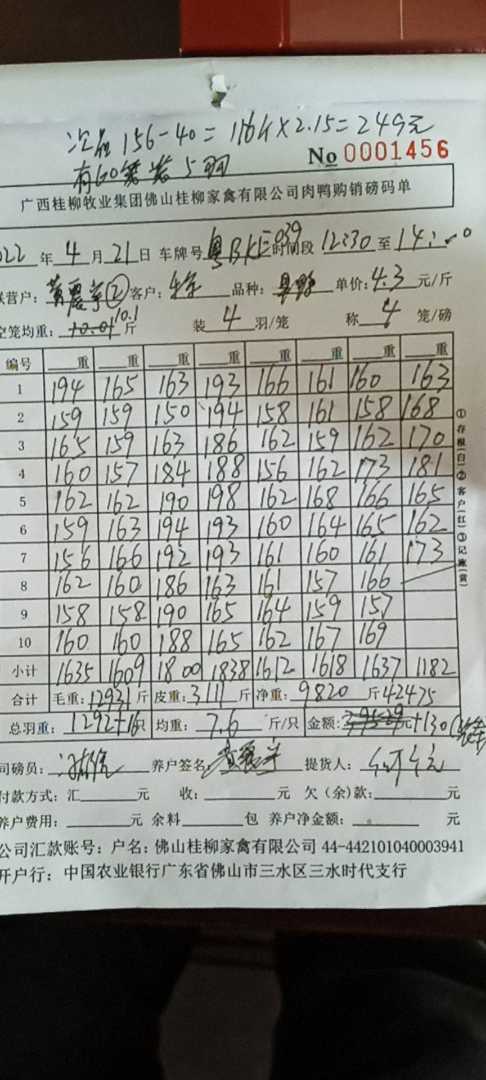 次品 156-40=116斤×2.15=249元
有60笼装5羽
No 0001456
广西桂柳牧业集团佛山桂柳家禽有限公司肉鸭购销磅码单
022 年 4 月 21 日 车牌号 粤BKE039 时间段 12:30 至 14:
联营户: ② 客户: 品种: 单价: 4.3 元/斤
空笼均重: 10.01 10.1 斤 装 4 羽/笼 称 4 笼/磅
编号 重 重 重 重 重 重 重 重
1 194 165 163 193 166 161 160 163
2 159 159 150 194 158 161 158 168
3 165 159 163 186 162 159 162 170
4 160 157 184 188 156 162 173 181
5 162 162 190 198 162 168 166 165
6 159 163 194 193 160 164 165 162
7 156 166 192 193 161 160 161 173
8 162 160 186 163 161 157 166
9 158 158 190 165 164 159 157
10 160 160 188 165 162 167 169
小计 1635 1609 1800 1838 1612 1618 1637 1182
合计 毛重: 12931 斤 皮重: 3111 斤 净重: 9820 斤 42475
总羽重: 1292+16 只 均重: 7.6 斤/只 金额: 元+130
司磅员: 养户签名: 提货人:
付款方式: 汇 元 收: 元 欠(余)款: 元
养户费用: 元 余料 包 养户净金额: 元
公司汇款账号: 户名: 佛山桂柳家禽有限公司 44-442101040003941
开户行: 中国农业银行广东省佛山市三水区三水时代支行
①存根(白)②客户(红)③记账(黄)